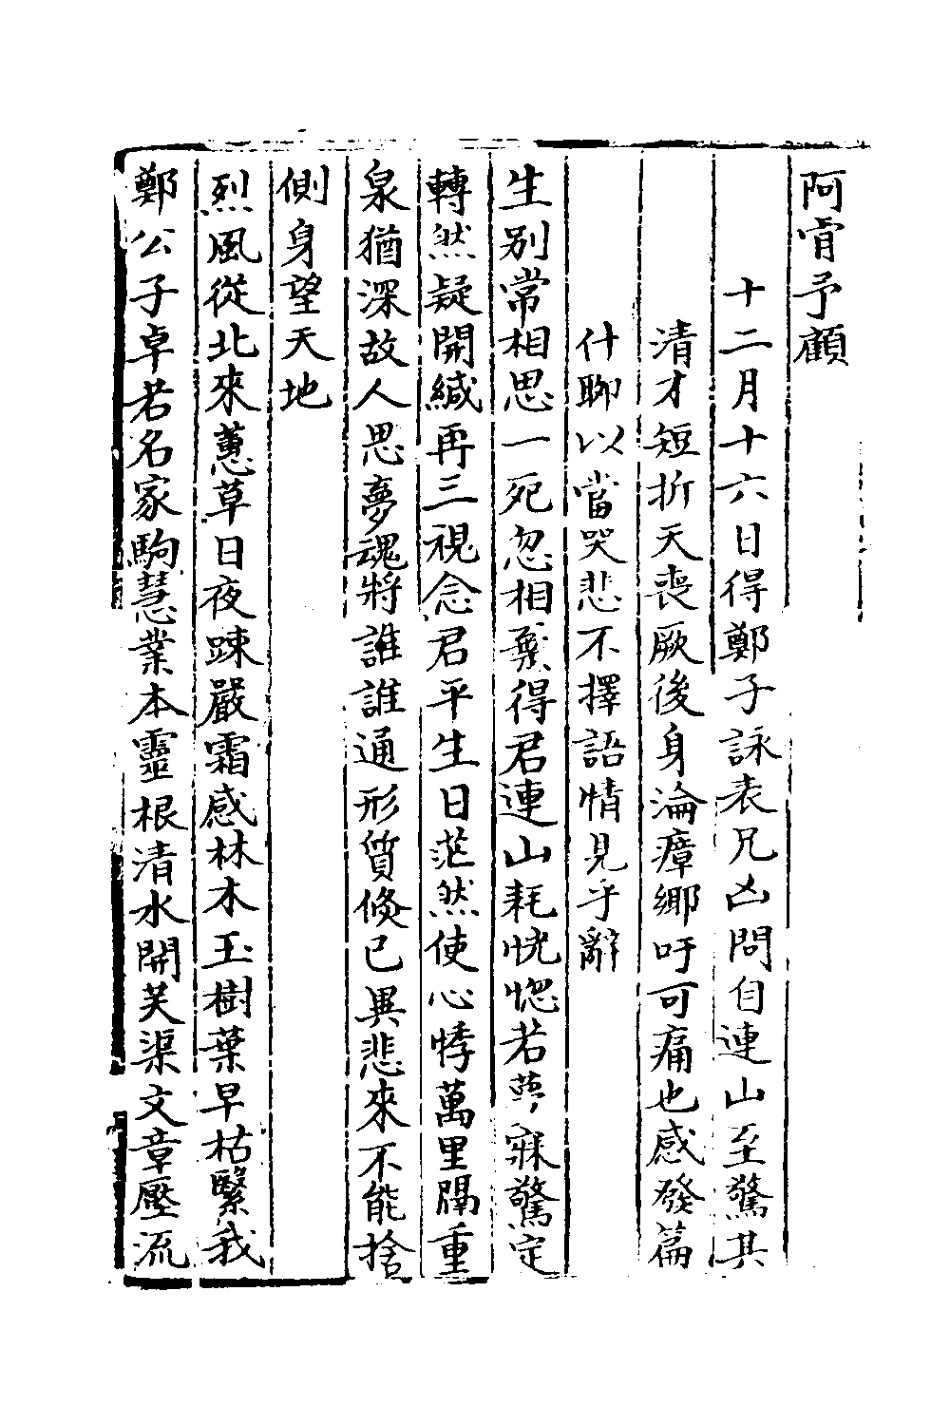 阿肎予顧
十二月十六日得鄭子詠表兄凶問自連山至驚其
清才短折天喪厥後身淪瘴鄉吁可痛也感發篇
什聊以當哭悲不擇語情見乎辭
生別常相思一死忽相棄得君連山耗恍惚若夢寐驚定
轉然疑開緘再三視念君平生日茫然使心悸萬里隔重
泉猶深故人思夢魂將誰誰通形質倐已異悲來不能捨
側身望天地
烈風從北來蕙草日夜踈嚴霜感林木玉樹葉早枯緊我
鄭公子卓若名家駒慧業本靈根清水開芙渠文章壓流